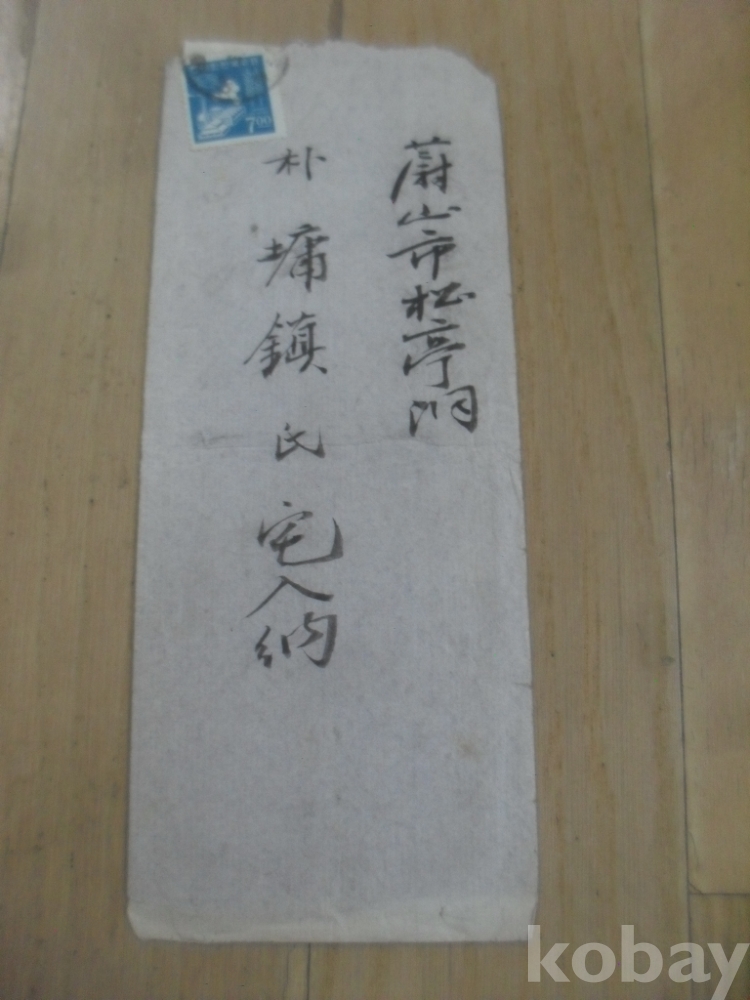 蔚山市松亭洞
朴墉鎭氏宅入納
7.00
kobay